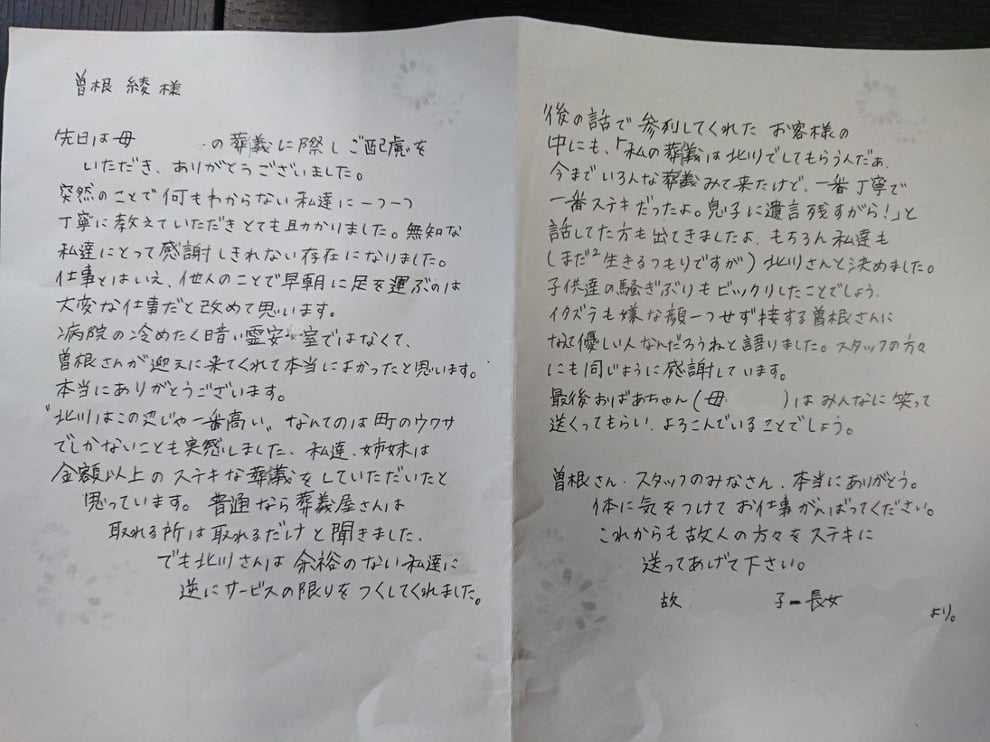 曽根 綾 様
先日は母 の葬義に際しご配慮を
いただき、ありがとうございました。
突然のことで何もわからない私達に一つ一つ
丁寧に教えていただきとても助かりました。無知な
私達にとって感謝しきれない存在になりました。
仕事とはいえ、他人のことで早朝に足を運ぶのは
大変な仕事だと改めて思います。
病院の冷めたく暗い霊安室ではなくて、
曽根さんが迎えに来てくれて本当によかったと思います。
本当にありがとうございます。
"北川はこの辺じゃ一番高い"なんてのは町のウワサ
でしかないことも実感しました。私達、姉妹は
金額以上のステキな葬義をしていただいたと
思っています。普通なら葬義屋さんは
取れる所は取れるだけと聞きました。
でも北川さんは余裕のない私達に
逆にサービスの限りをつくしてくれました。
後の話で参列してくれたお客様の
中にも、「私の葬義は北川でしてもらうんだぁ、
今までいろんな葬義みて来たけど、一番丁寧で
一番ステキだったよ。息子に遺言残すがら!」と
話してた方も出てきましたよ、もちろん私達も
(まだ²生きるつもりですが)北川さんと決めました。
子供達の騒ぎぶりもビックリしたことでしょう。
イタズラも嫌な顔一つせず接する曽根さんに
なんて優しい人なんだろうねと語りました。スタッフの方々
にも同じように感謝しています。
最後おばあちゃん(母 )はみんなに笑って
送くってもらい、よろこんでいることでしょう。
曽根さん・スタッフのみなさん、本当にありがとう。
体に気をつけてお仕事がんばってください。
これからも故人の方々をステキに
送ってあげて下さい。
故 子ー長女
より。